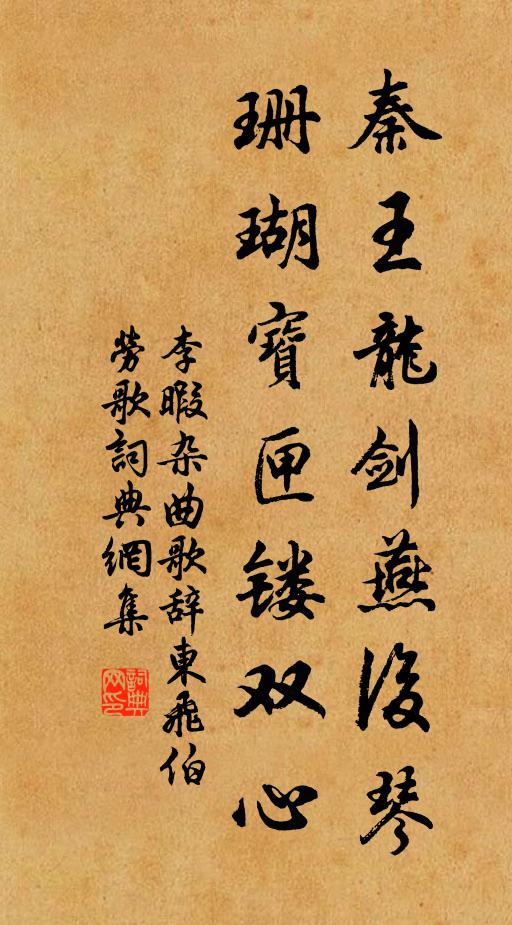 秦王龍剑燕後琴
珊瑚寶匣镂双心
李暇杂曲歌辞東飛伯
劳歌詞典網集
詞典
网印